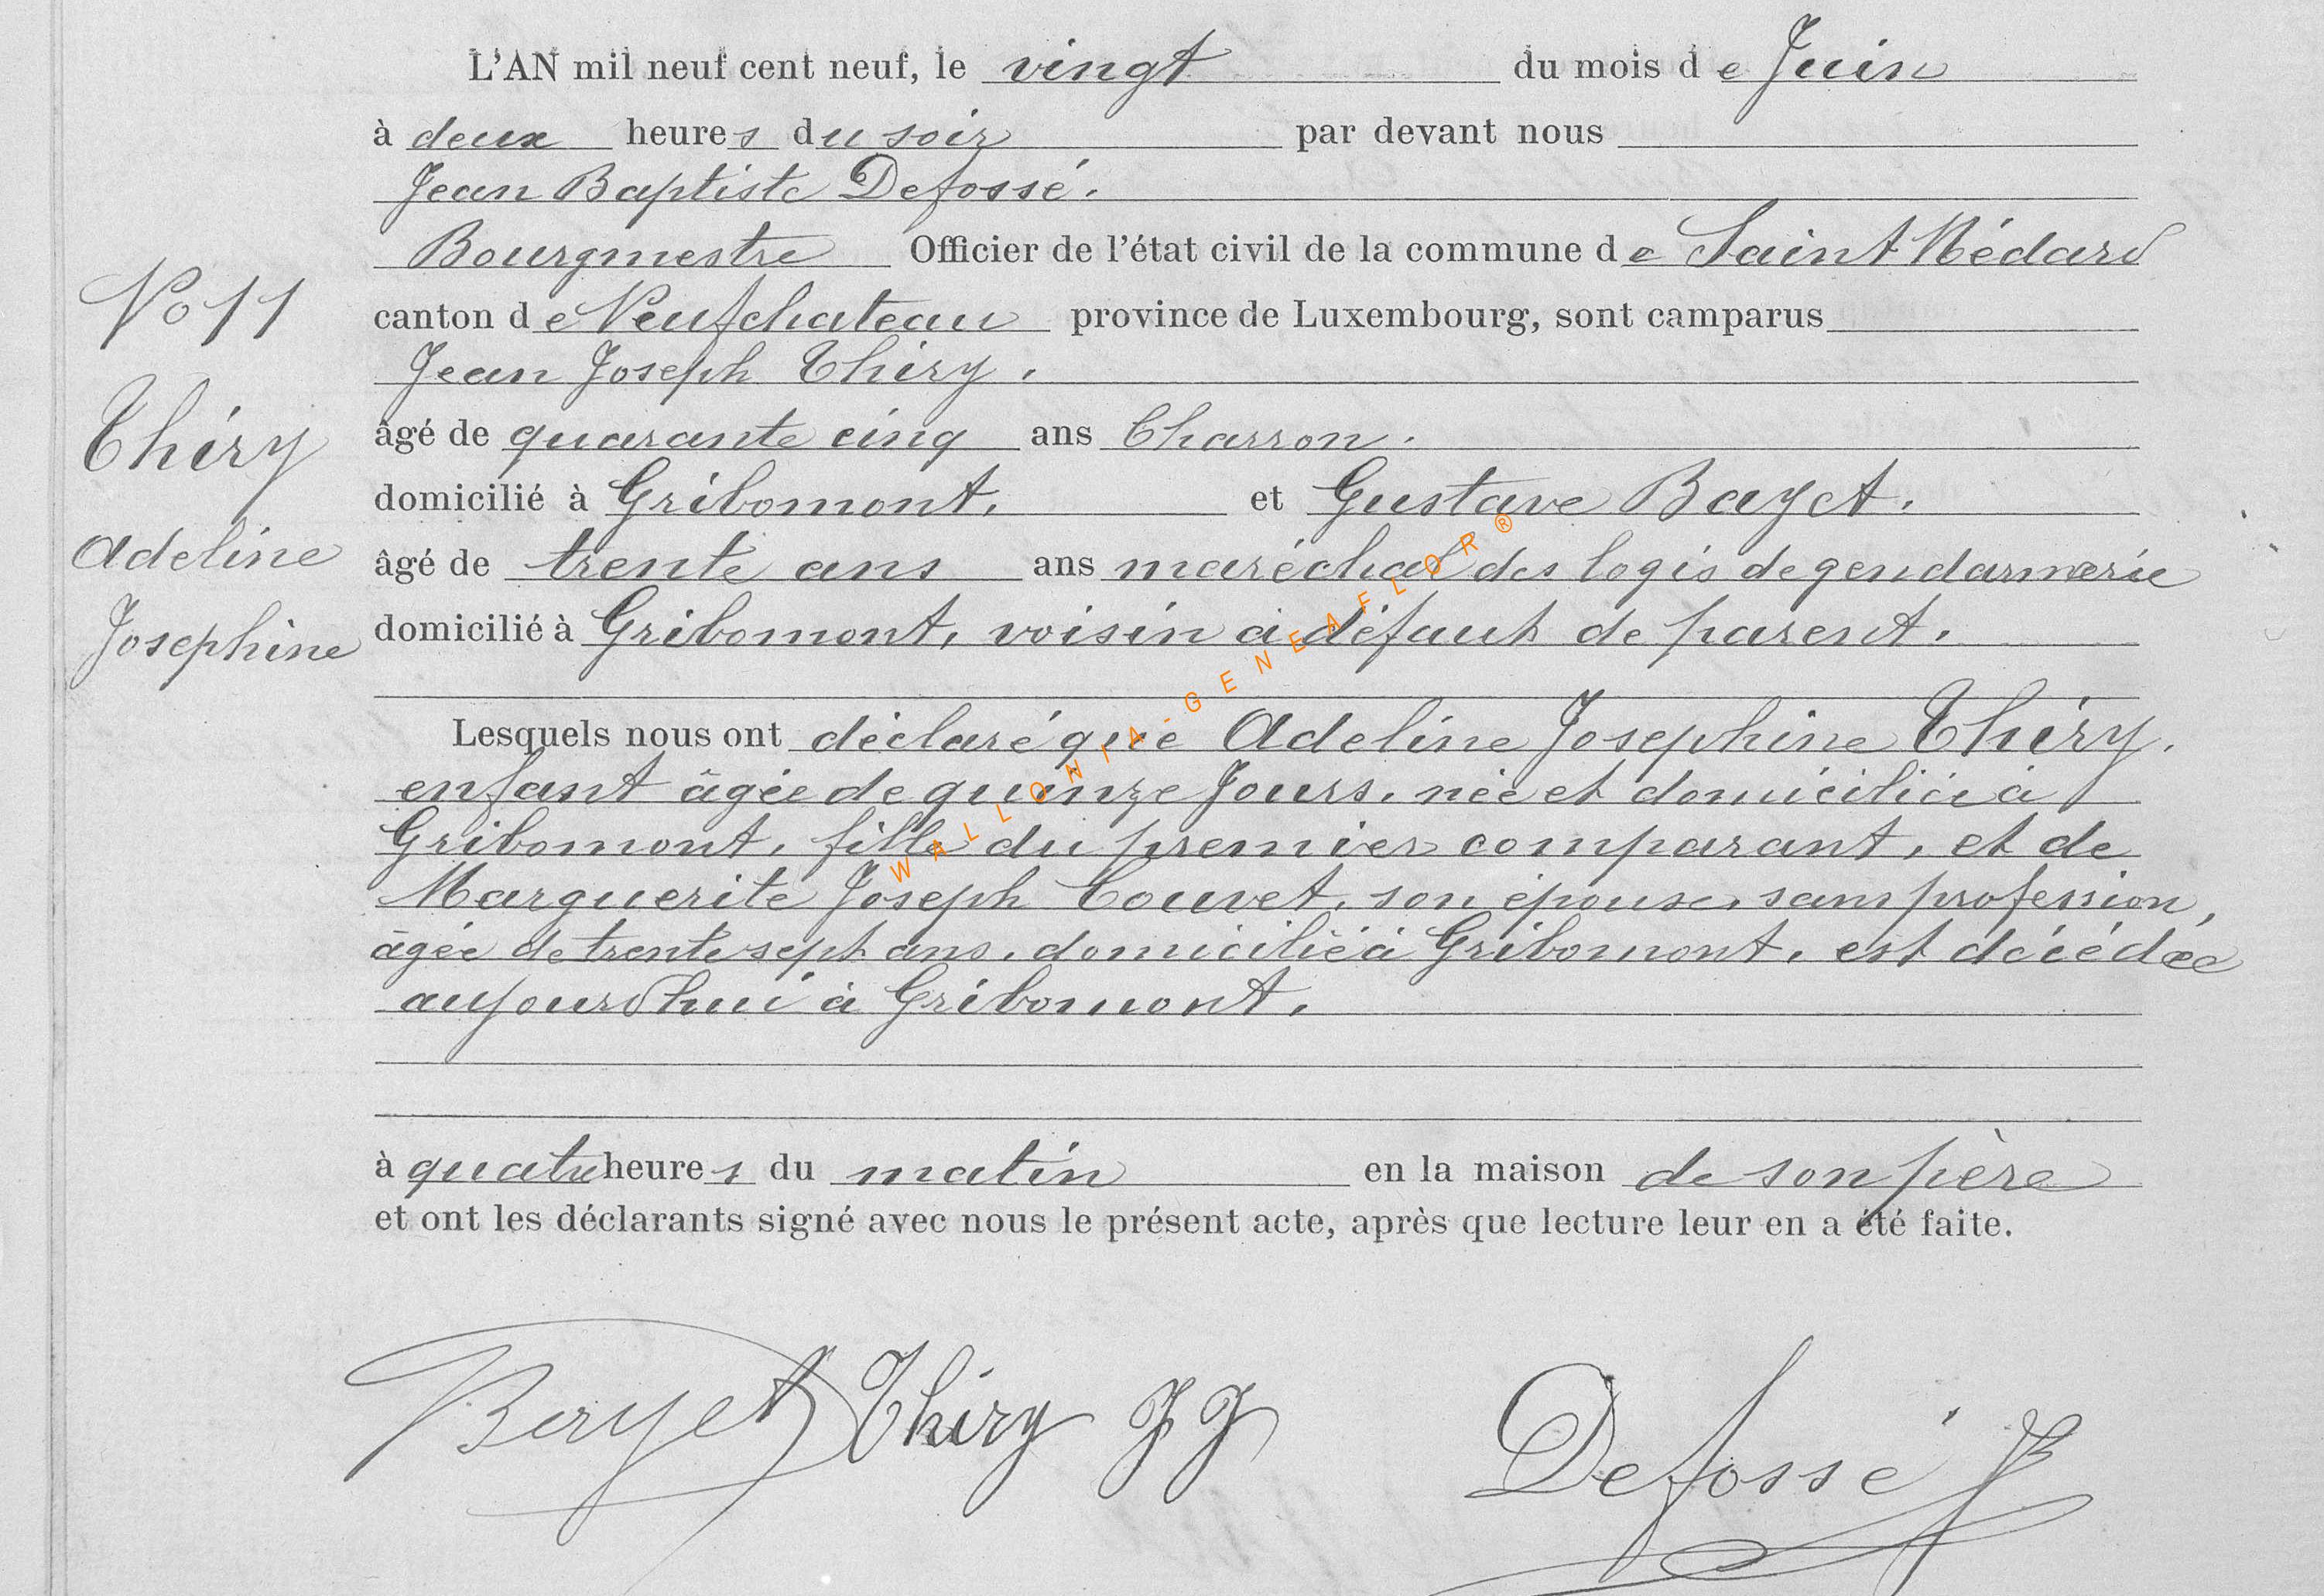 L'AN mil neuf cent neuf, le vingt du mois de Juin
à deux heures du soir par devant nous
Jean Baptiste Defossé.
Bourgmestre Officier de l'état civil de la commune de Saint Médard
canton de Neufchateau province de Luxembourg, sont camparus
Jean Joseph Thiry.
âgé de quarante cinq ans Charron.
domicilié à Gribomont. et Gustave Bayet.
âgé de trente ans ans maréchal des logis de gendarmerie
domicilié à Gribomont, voisin à défaut de parent.
Lesquels nous ont déclaré que Adeline Josephine Thiry.
enfant âgée de quinze Jours. née et domiciliée à
Gribomont. fille du premier comparant, et de
Marguerite Joseph Couvet, son épouse, sans profession,
âgée de trente sept ans. domiciliée à Gribomont. est décédée
aujourdhui à Gribomont.
à quatre heures du matin en la maison de son père
et ont les déclarants signé avec nous le présent acte, après que lecture leur en a été faite.
No 11
Thiry
Adeline
Josephine
Bayet Thiry JJ Defossé JB
WALLONIA-GENEAFLOR®